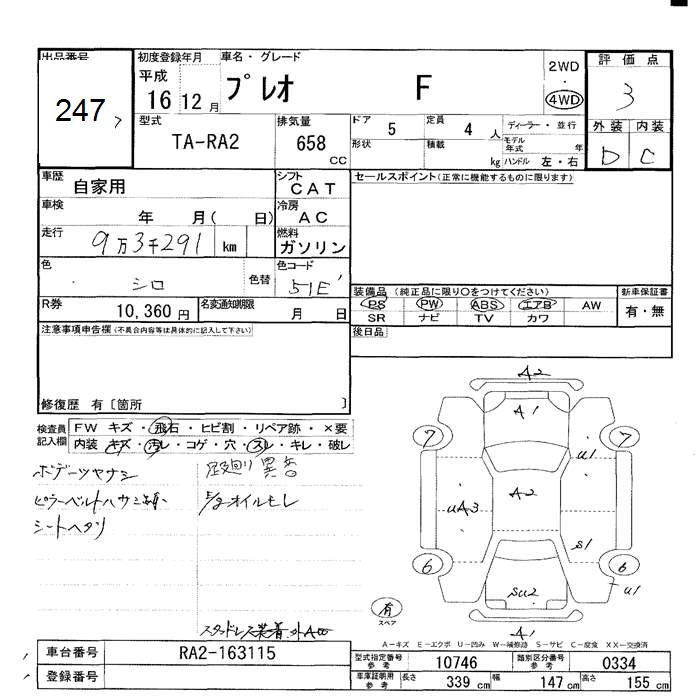 出品番号
247
初度登録年月
平成
16 12月
車名・グレード
プレオ F
2WD
・
4WD
評価点
3
外装 内装
D C
型式
TA-RA2
排気量
658
CC
ドア 5
定員 4 人
形状
積載 kg
ディーラー・並行
モデル年式 年
ハンドル 左・右
車歴
自家用
シフト
CAT
セールスポイント(正常に機能するものに限ります)
車検
年 月( 日)
冷房
AC
走行
9万3千291 km
燃料
ガソリン
色
シロ
色替
色コード
51E
装備品(純正品に限り○をつけてください)
PS PW ABS エアB AW
SR ナビ TV カワ
新車保証書
有・無
R券
10,360円
名変通知期限
月 日
後日品
注意事項申告欄(不具合内容等は具体的に記入して下さい)
修復歴 有〔箇所 〕
検査員記入欄
FW キズ・飛石・ヒビ割・リペア跡・×要
内装 キズ・汚レ・コゲ・穴・スレ・キレ・破レ
ボデーツヤナシ
ピラーベルトハサミ
シートヘタリ
足廻り異音
オイルモレ
スタッドレス装着
A2
A1
7 7
u1
uA3
A2
S1
6 6
u1
Su2
A1
有
スペア
A－キズ E－エクボ U－凹み W－補修跡 S－サビ C－腐食 XX－交換済
車台番号
RA2-163115
登録番号
型式指定番号
参考
10746
類別区分番号
参考
0334
車庫証明用
参考
長さ 339 cm
幅 147 cm
高さ 155 cm